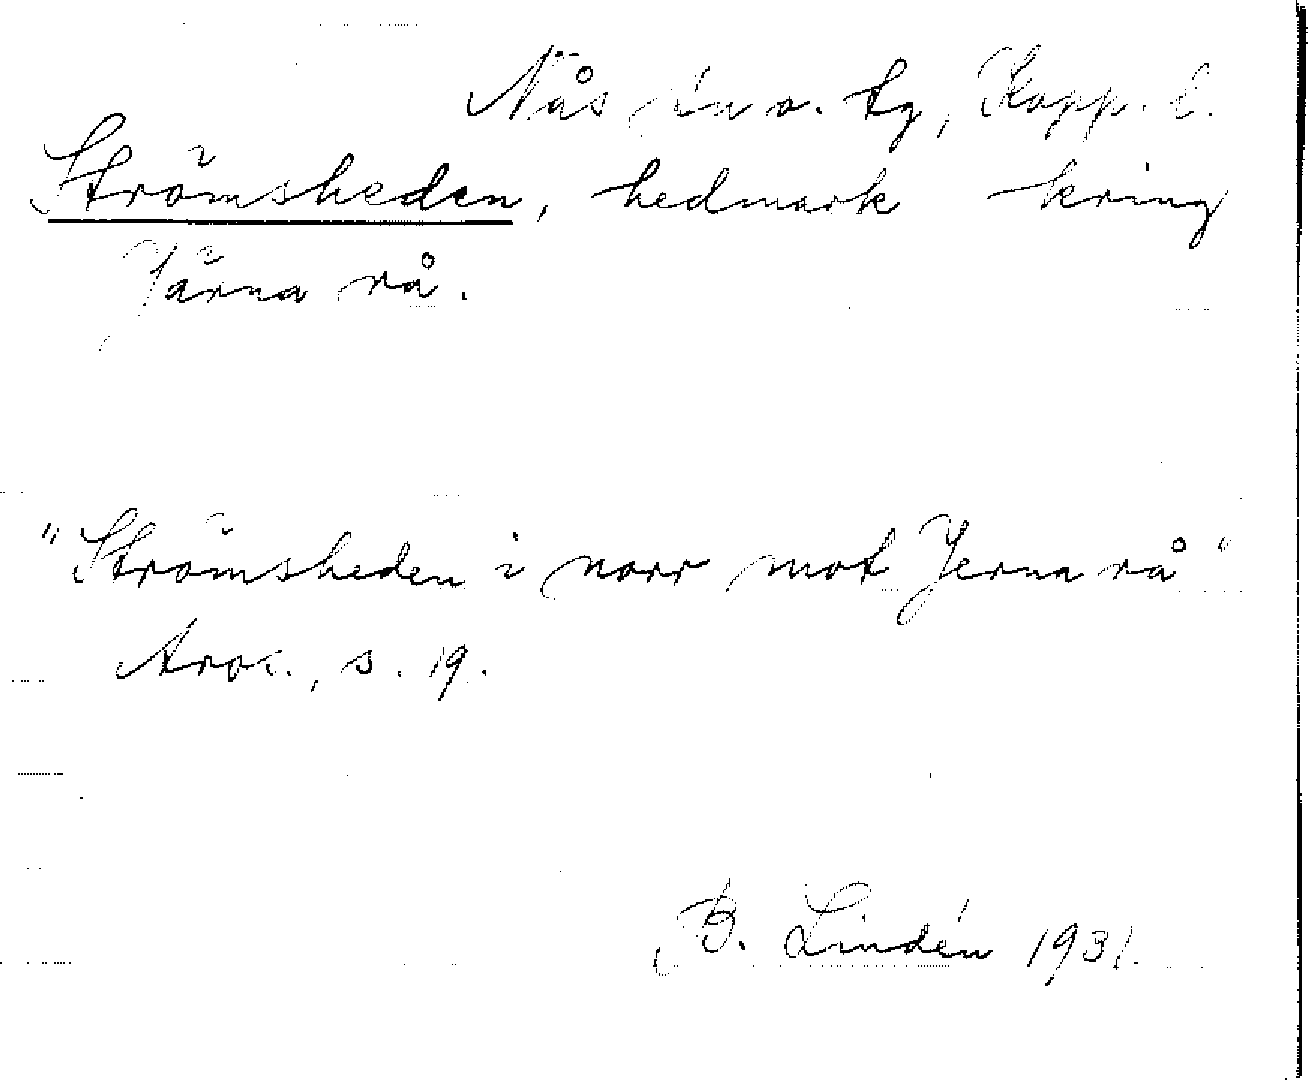 Nås sn o. tg, Kopp. l.
Strömsheden, hedmark kring
Järna rå.
"Strömsheden i norr mot Jerna rå"
Aros., s. 19.
B. Lindén 1931.